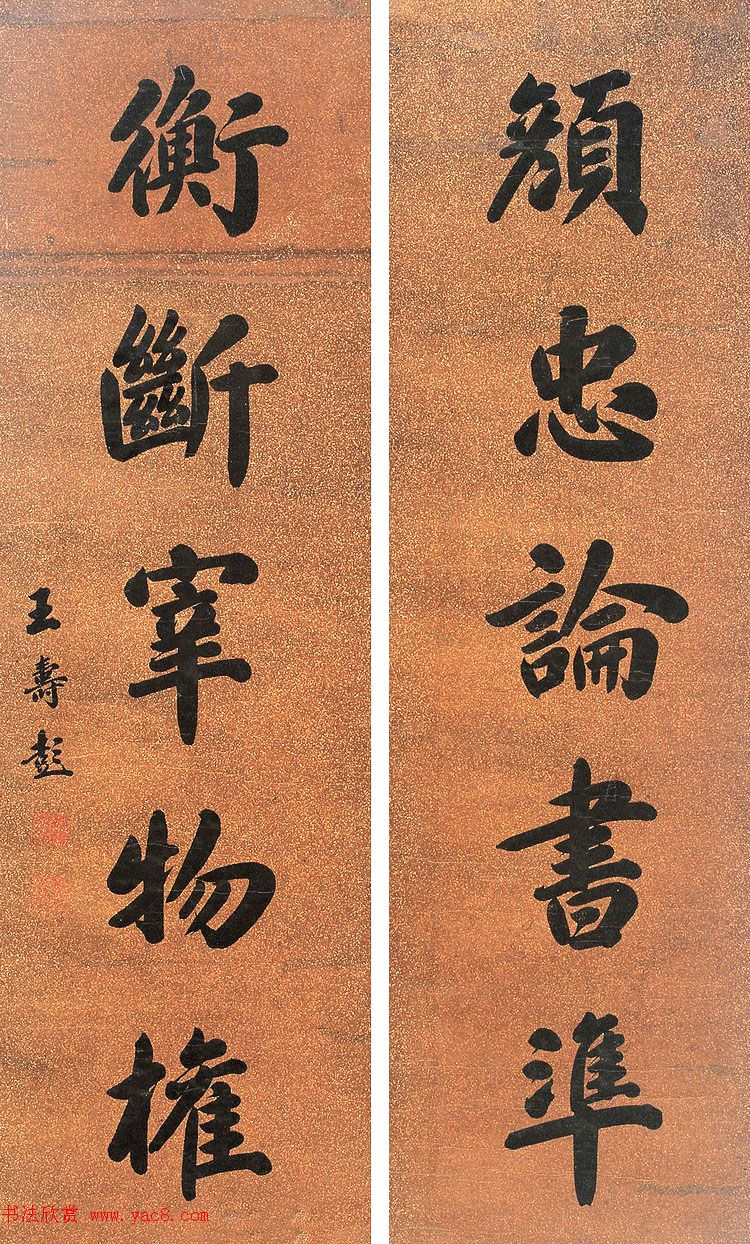 顏忠論書準
衡斷宰物權
王壽彭
书法欣赏 www.yac8.com